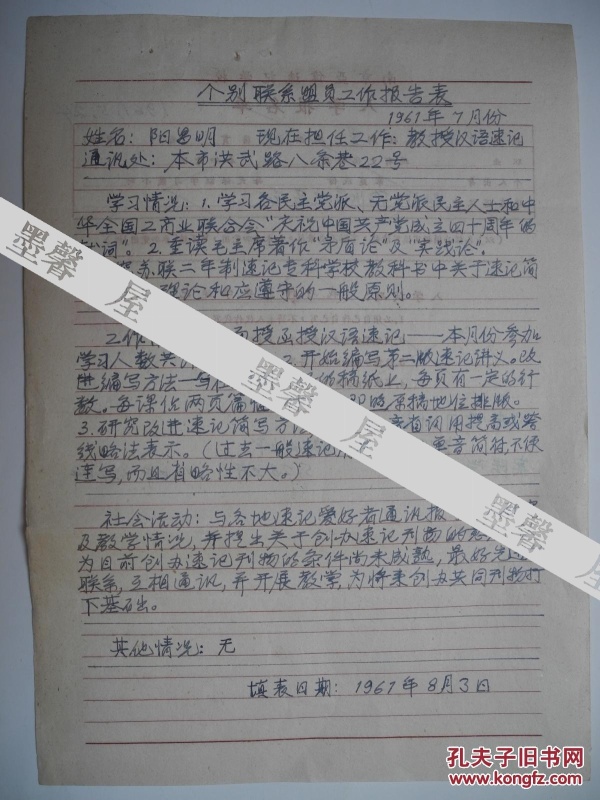 个别联系盟员工作报告表
1961年7月份
姓名：阳昌明 现在担任工作：教授汉语速记
通讯处：本市洪武路八条巷22号
学习情况：1.学习各民主党派、无党派民主人士和中
华全国工商业联合会“庆祝中国共产党成立四十周年的
词”。2.重读毛主席著作“矛盾论”及“实践论”。
苏联二年制速记专科学校教科书中关于速记简
理论和应遵守的一般原则。
工作 面授函授汉语速记——本月份参加
学习人数共 2.开始编写第二版速记讲义。改
进编写方法—— 稿纸上，每页有一定的行
数。每课佔两页篇 原稿地位排版。
3.研究改进速记简写方 词用提高或跨
线略法表示。（过去一般速记 重音简符，不便
连写，而且省略性不大。）
社会活动：与各地速记爱好者通讯报
及教学情况，并提出关于创办速记刊物的
为目前创办速记刊物的条件尚未成熟，最好先
联系，互相通讯，并开展教学，为将来创办共同刊物打
下基础。
其他情况：无
填表日期：1961年8月3日
墨馨屋
墨馨屋
墨馨屋
孔夫子旧书网
www.kongfz.com